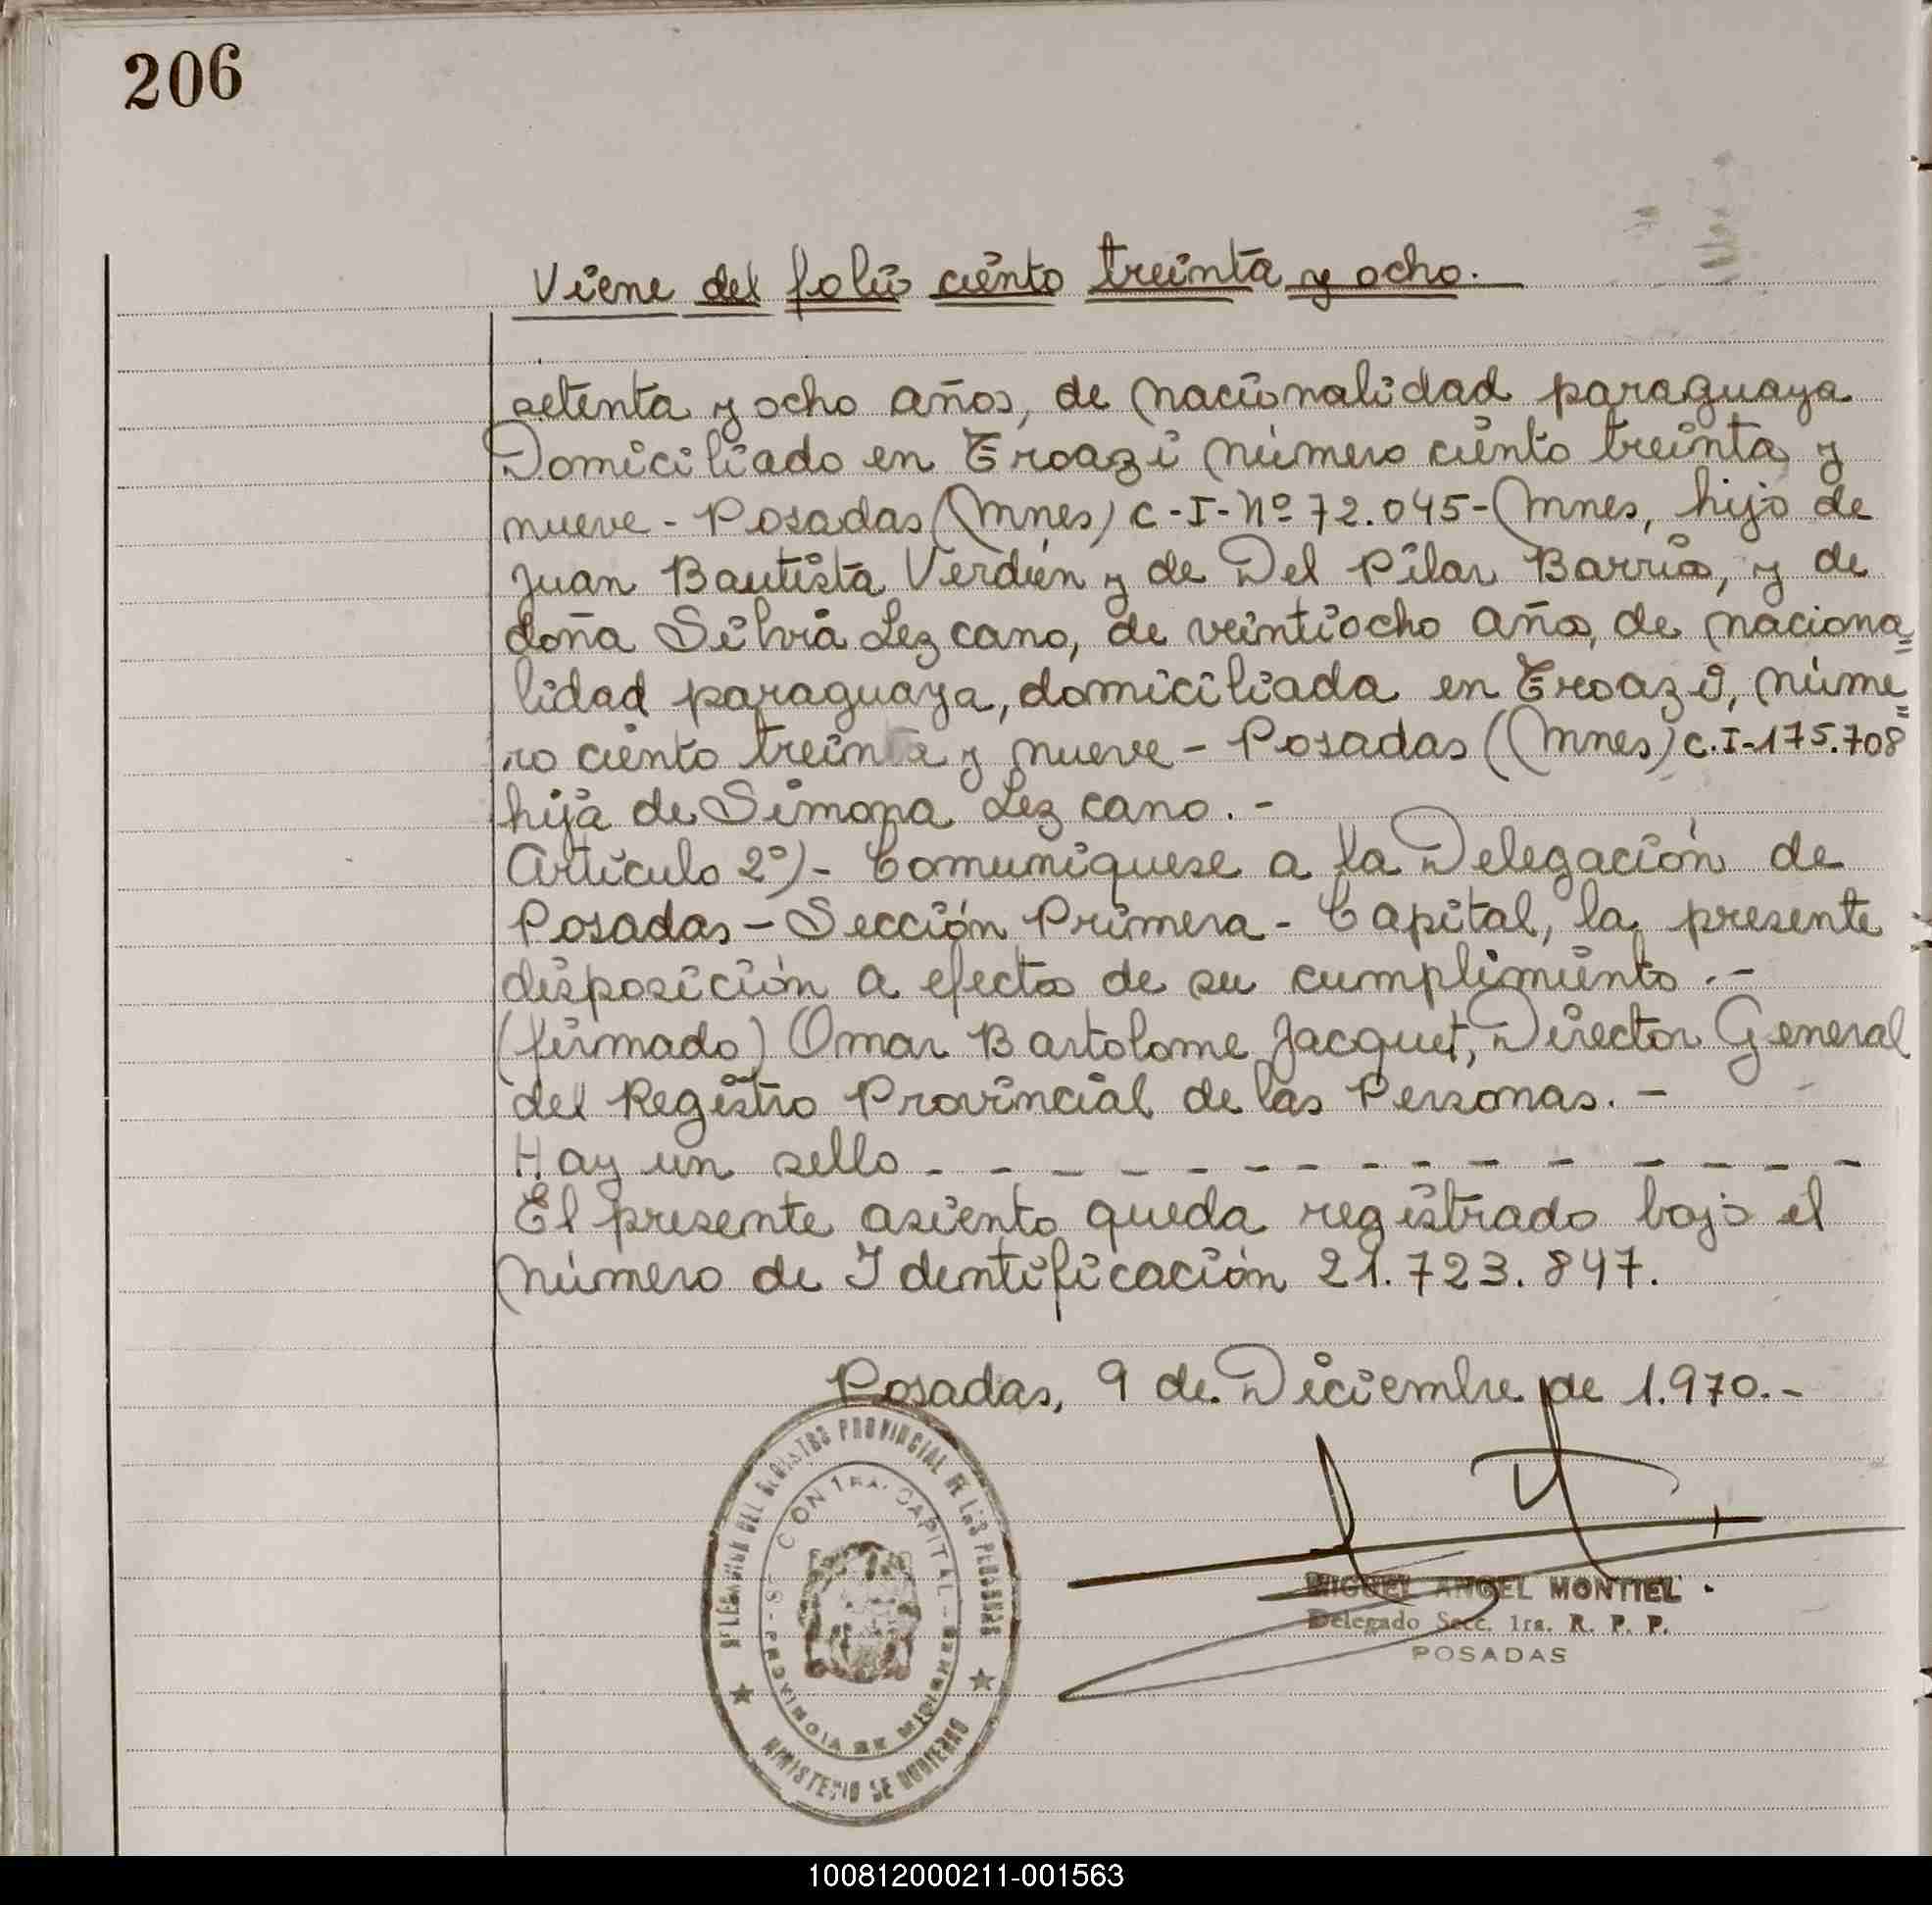 206
Viene del folio ciento treinta y ocho.
setenta y ocho años, de nacionalidad paraguaya
Domiciliado en Eroazi número ciento treinta y
nueve - Posadas (Mnes) C-I-Nº 72.045-Mnes, hijo de
Juan Bautista Verdún y de Del Pilar Barrios, y de
doña Silvia Lezcano, de veintiocho años, de naciona=
lidad paraguaya, domiciliada en Eroazi, núme=
ro ciento treinta y nueve - Posadas (Mnes) C.I-175.708
hija de Simona Lezcano.-
Artículo 2º)- Comuníquese a la Delegación de
Posadas - Sección Primera - Capital, la presente
disposición a efectos de su cumplimiento.-
(firmado) Omar Bartolome Jacquet, Director General
del Registro Provincial de las Personas.-
Hay un sello - - - - - - - - - - - - - - -
El presente asiento queda registrado bajo el
número de Identificación 21.723.847.
Posadas, 9 de Diciembre de 1.970.-
DELEGACION DEL REGISTRO PROVINCIAL DE LAS PERSONAS
CAPITAL
PROVINCIA DE MISIONES
MINISTERIO DE GOBIERNO
MIGUEL ANGEL MONTIEL
Delegado Secc. 1ra. R. P. P.
POSADAS
100812000211-001563